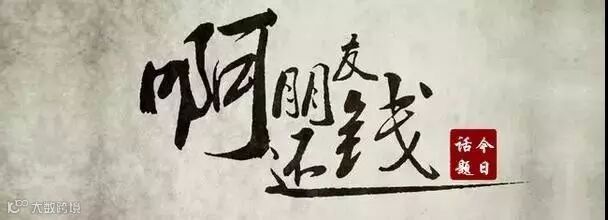 啊朋友还钱
今日话题
大数跨境